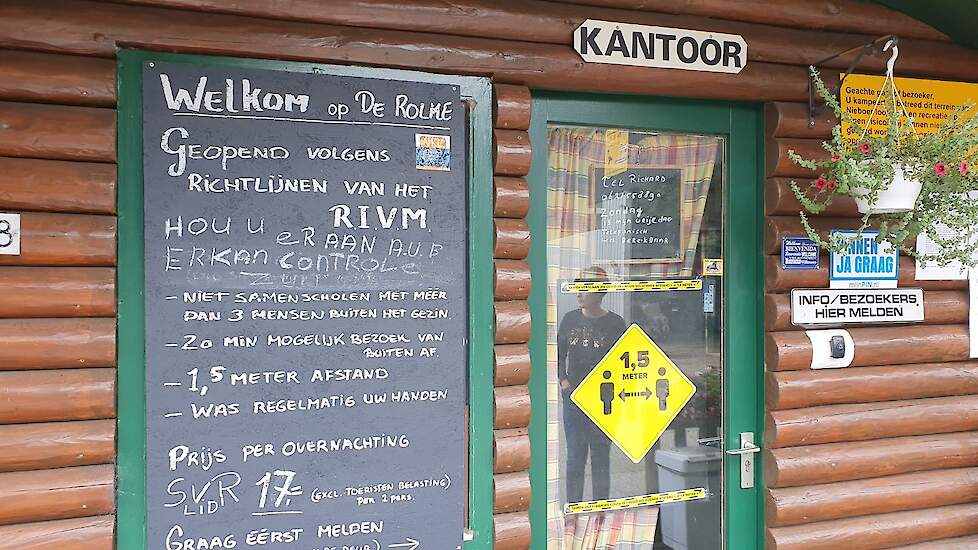 WELKOM OP DE ROLKE
GEOPEND VOLGENS
RICHTLIJNEN VAN HET
R.I.V.M.
HOU U ER AAN A.U.B
ERKAN CONTROLE
- NIET SAMENSCHOLEN MET MEER
DAN 3 MENSEN BUITEN HET GEZIN.
- ZO MIN MOGELIJK BEZOEK VAN
BUITEN AF.
- 1,5 METER AFSTAND
- WAS REGELMATIG UW HANDEN
PRIJS PER OVERNACHTING
SVR LID 17,- (EXCL. TOERISTEN BELASTING)
PER 2 PERS.
GRAAG ÉÉRST MELDEN
KANTOOR
TEL RICHARD
ZONDAG
MIJN VRIJE DAG
TELEFONISCH
BEREIKBAAR
1,5
METER
Geachte bezoeker,
BIENVENIDA
PINNEN
JA GRAAG
mijnPIN.nl
INFO/BEZOEKERS,
HIER MELDEN
8